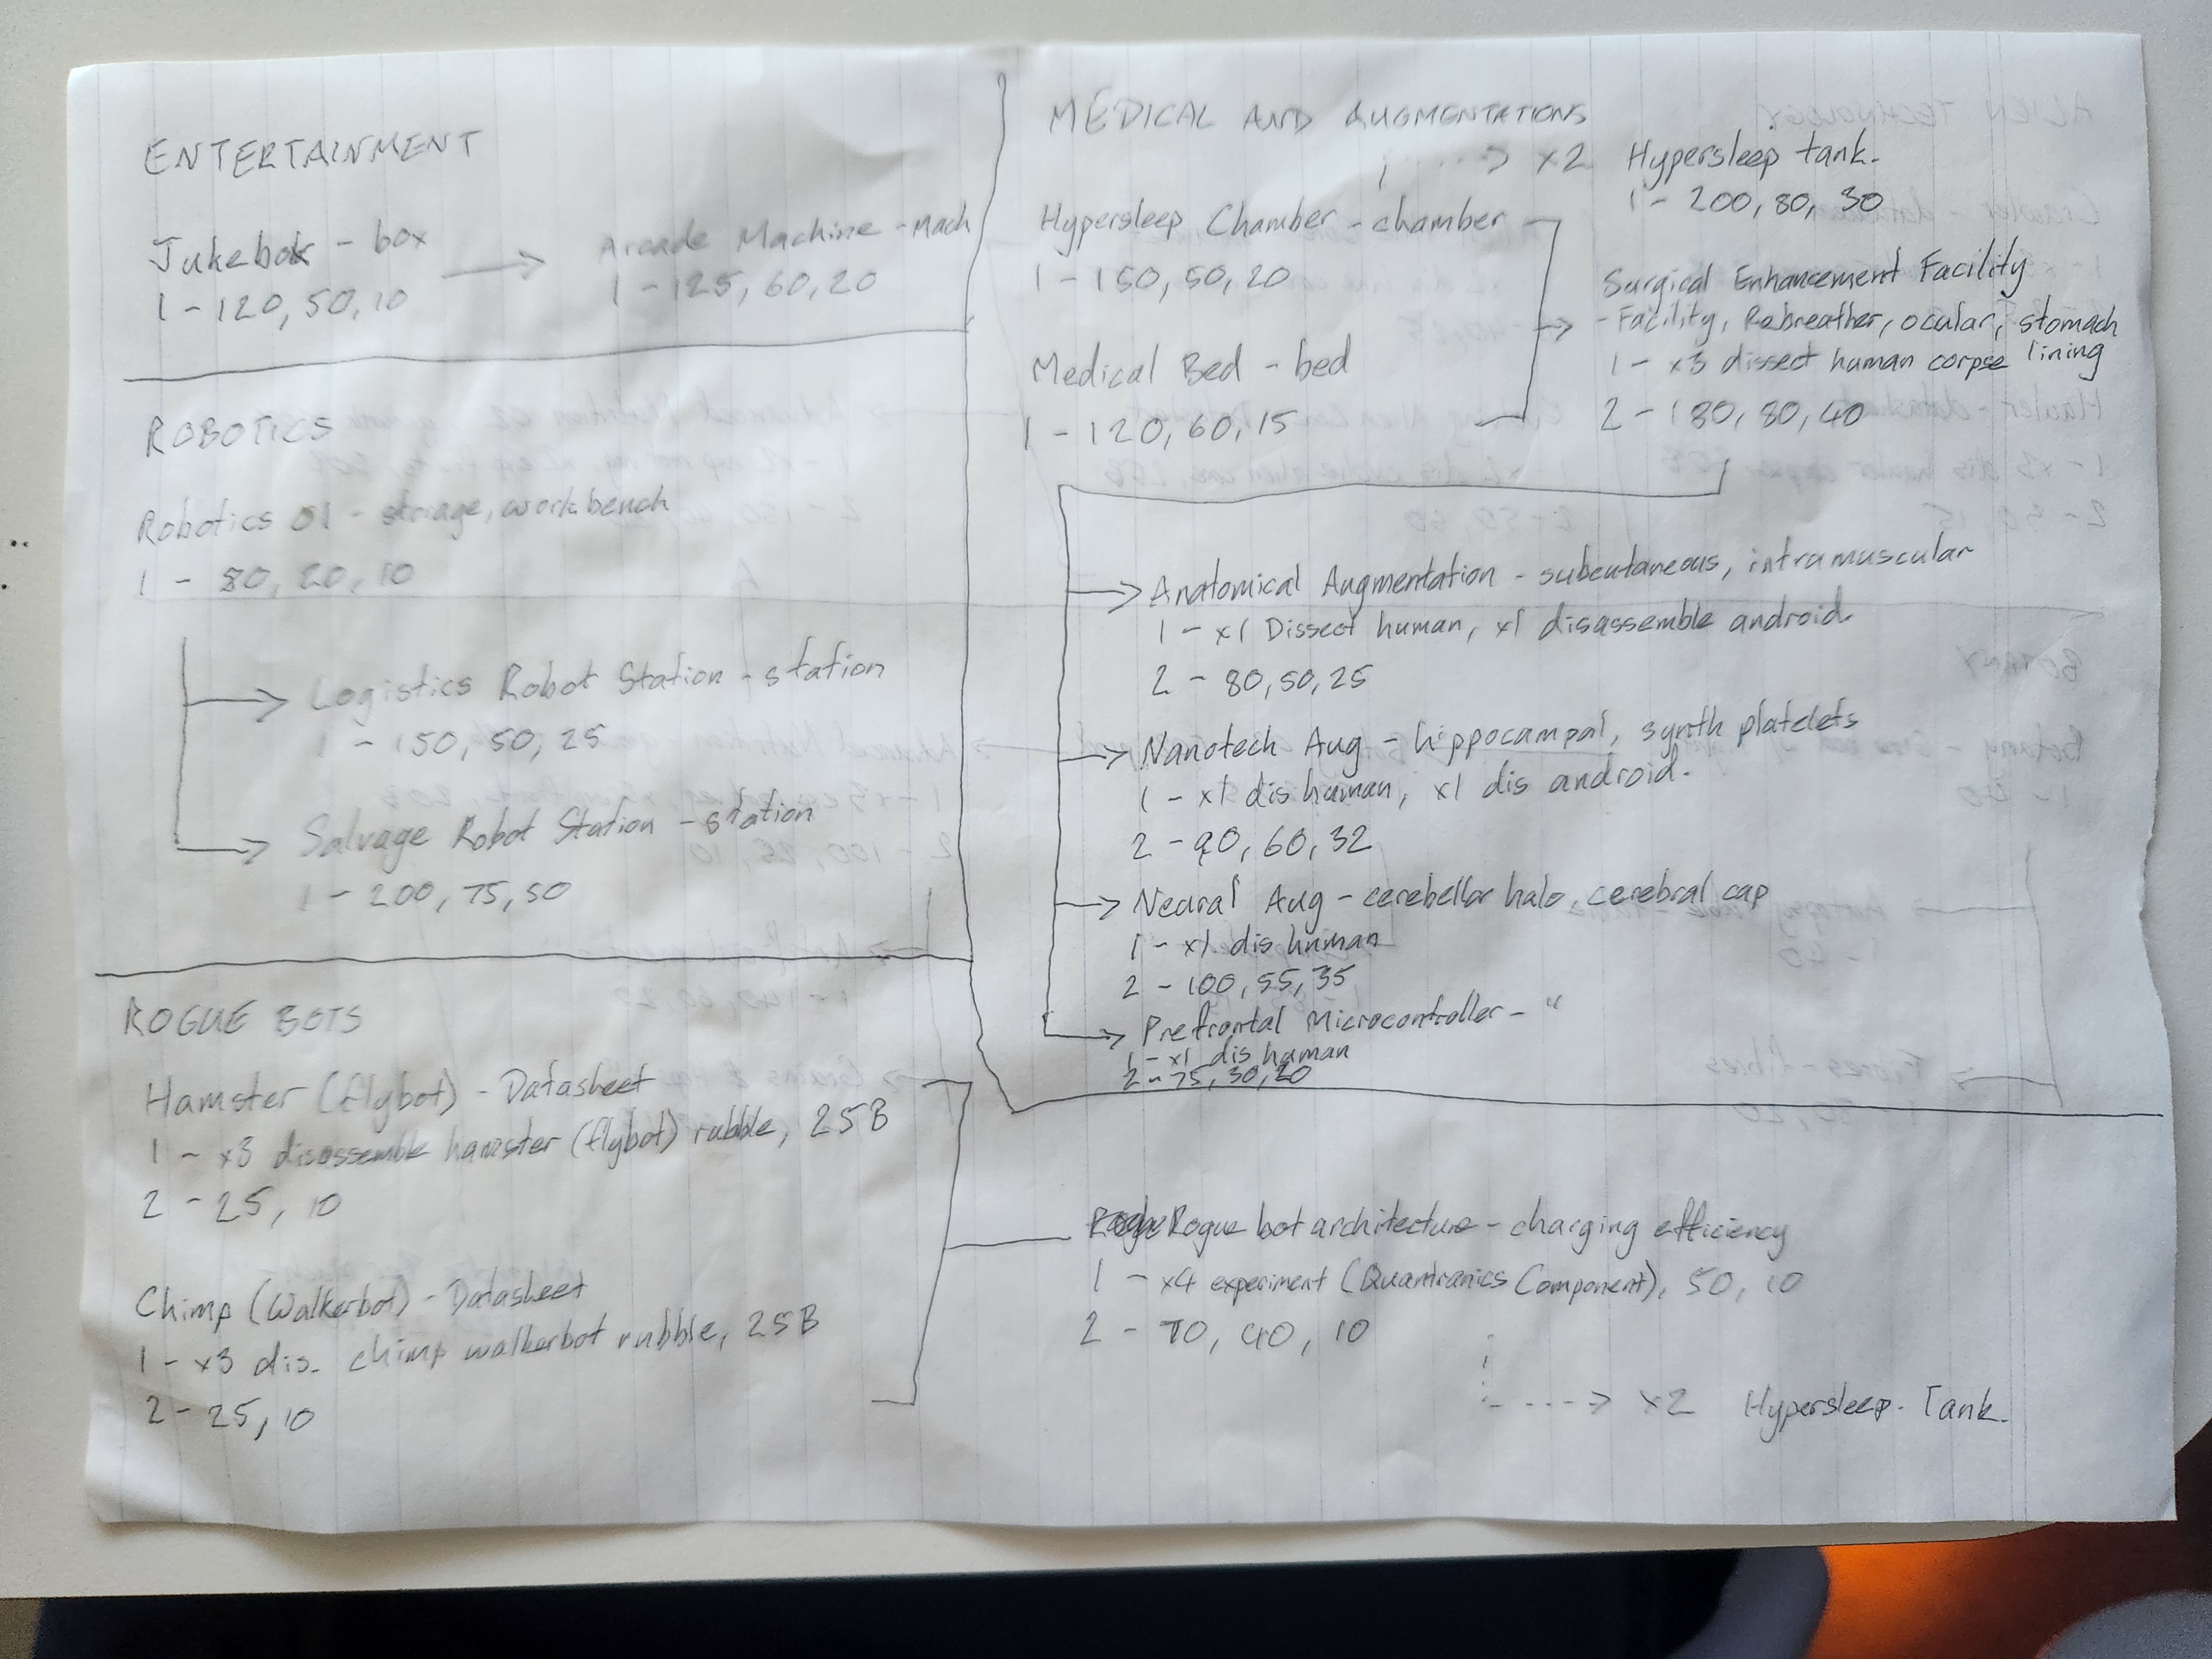 ENTERTAINMENT
Jukebox - box
1 - 120, 50, 10
Arcade Machine - Mach
1 - 125, 60, 20
ROBOTICS
Robotics 01 - storage, workbench
1 - 80, 20, 10
Logistics Robot Station - station
1 - 150, 50, 25
Salvage Robot Station - station
1 - 200, 75, 50
ROGUE BOTS
Hamster (flybot) - Datasheet
1 - x3 disassemble hamster (flybot) rubble, 25B
2 - 25, 10
Chimp (Walkerbot) - Datasheet
1 - x3 dis. chimp walkerbot rubble, 25B
2 - 25, 10
MEDICAL AND AUGMENTATIONS
x2 Hypersleep tank.
1 - 200, 80, 30
Hypersleep Chamber - chamber
1 - 150, 50, 20
Medical Bed - bed
1 - 120, 60, 15
Surgical Enhancement Facility
- Facility, Rebreather, ocular, stomach
lining
1 - x3 dissect human corpse
2 - 180, 80, 40
Anatomical Augmentation - subcutaneous, intramuscular
1 - x1 Dissect human, x1 disassemble android.
2 - 80, 50, 25
Nanotech Aug - hippocampal, synth platelets
1 - x1 dis human, x1 dis android.
2 - 90, 60, 32
Neural Aug - cerebellar halo, cerebral cap
1 - x1 dis human
2 - 100, 55, 35
Prefrontal Microcontroller - "
1 - x1 dis human
2 - 75, 30, 20
Rogue bot architecture - charging efficiency
1 - x4 experiment (Quantranics Component), 50, 10
2 - 70, 40, 10
x2 Hypersleep. Tank.